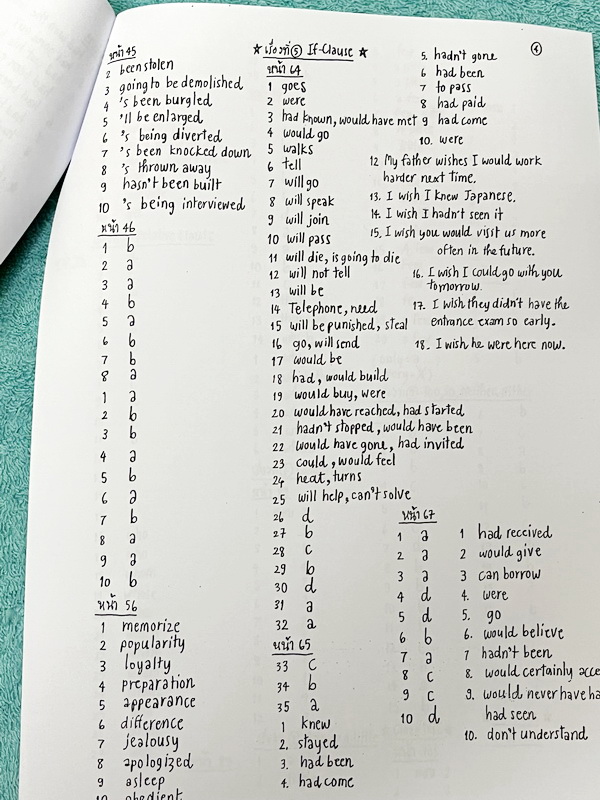 หน้า 45
2 been stolen
3 going to be demolished
4 's been burgled
5 'll be enlarged
6 's being diverted
7 's been knocked down
8 's thrown away
9 hasn't been built
10 's being interviewed
หน้า 46
1 b
2 a
3 a
4 b
5 a
6 b
7 b
8 a
1 a
2 b
3 b
4 a
5 b
6 a
7 b
8 a
9 a
10 b
หน้า 56
1 memorize
2 popularity
3 loyalty
4 preparation
5 appearance
6 difference
7 jealousy
8 apologized
9 asleep
10 obedient
★ เรื่องที่ ⑤ If-Clause ★
หน้า 64
1 goes
2 were
3 had known, would have met
4 would go
5 walks
6 tell
7 will go
8 will speak
9 will join
10 will pass
11 will die, is going to die
12 will not tell
13 will be
14 Telephone, need
15 will be punished, steal
16 go, will send
17 would be
18 had, would build
19 would buy, were
20 would have reached, had started
21 hadn't stopped, would have been
22 would have gone, had invited
23 could, would feel
24 heat, turns
25 will help, can't solve
26 d
27 b
28 c
29 b
30 d
31 a
32 a
หน้า 65
33 c
34 b
35 a
1 knew
2. stayed
3. had been
4. had come
④
5. hadn't gone
6 had been
7 to pass
8 had paid
9 had come
10. were
12 My father wishes I would work
harder next time.
13. I wish I knew Japanese.
14. I wish I hadn't seen it
15. I wish you would visit us more
often in the future.
16. I wish I could go with you
tomorrow.
17. I wish they didn't have the
entrance exam so early.
18. I wish he were here now.
หน้า 67
1 a
2 a
3 a
4 d
5 d
6 b
7 a
8 c
9 c
10 d
1 had received
2 would give
3 can borrow
4. were
5. go
6. would believe
7 hadn't been
8. would certainly acce
9. would never have ha
had seen
10. don't understand